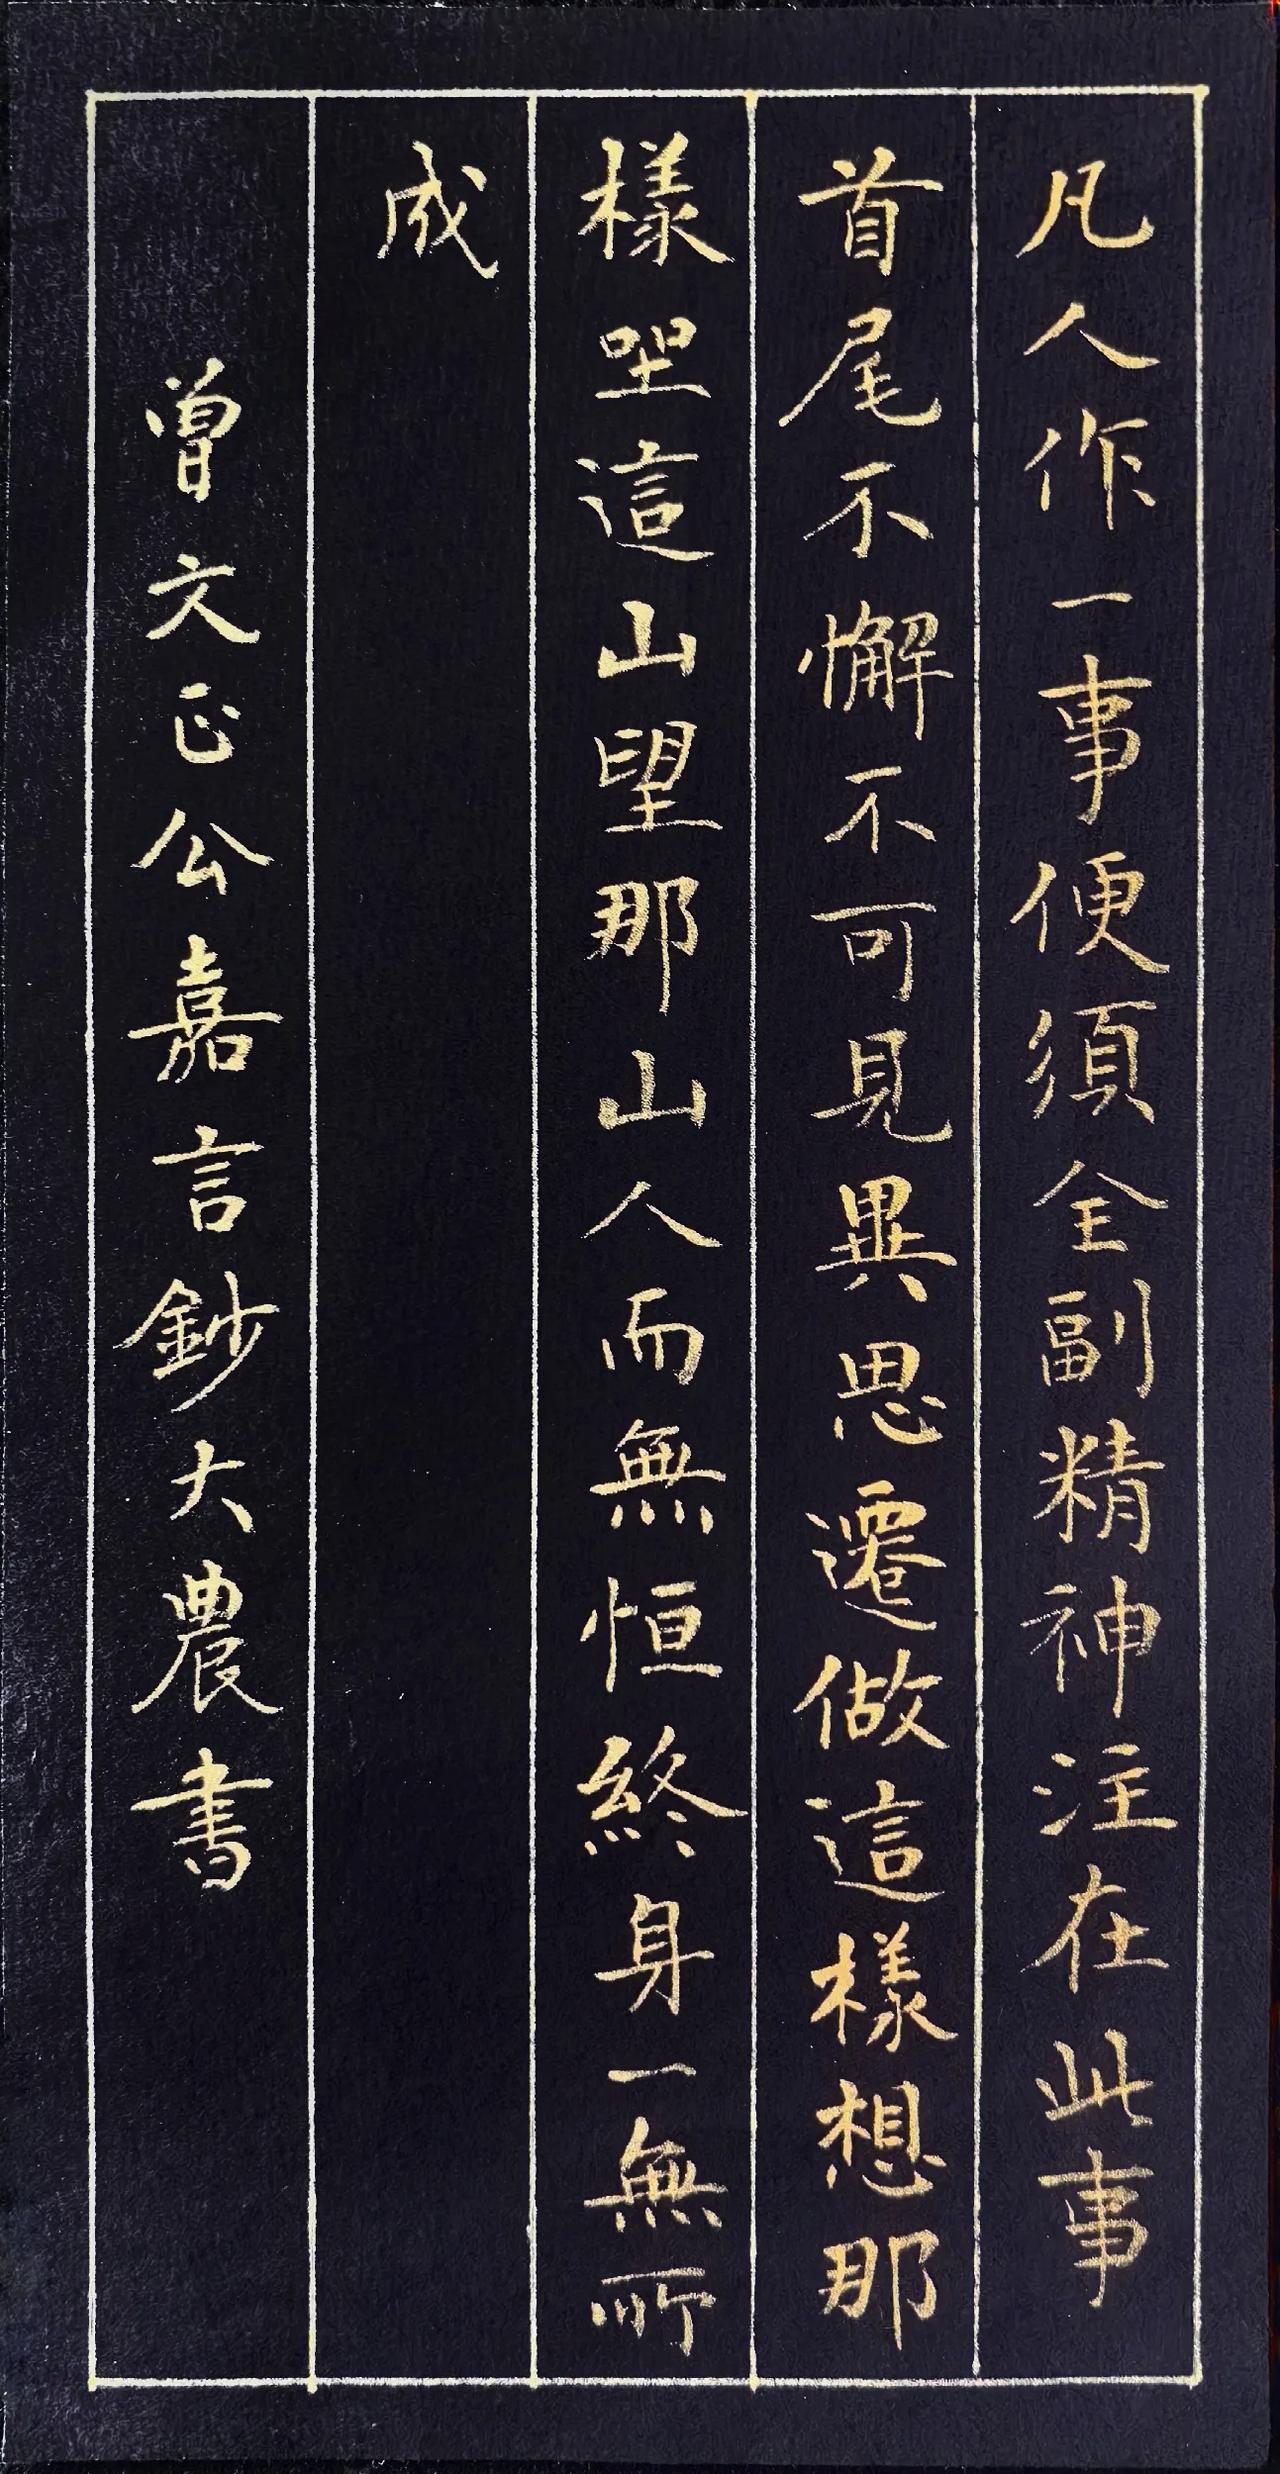 凡人作一事便須全副精神注在此事
首尾不懈不可見異思遷做這樣想那
樣坐這山望那山人而無恒終身一無所
成
曾文正公嘉言鈔大農書